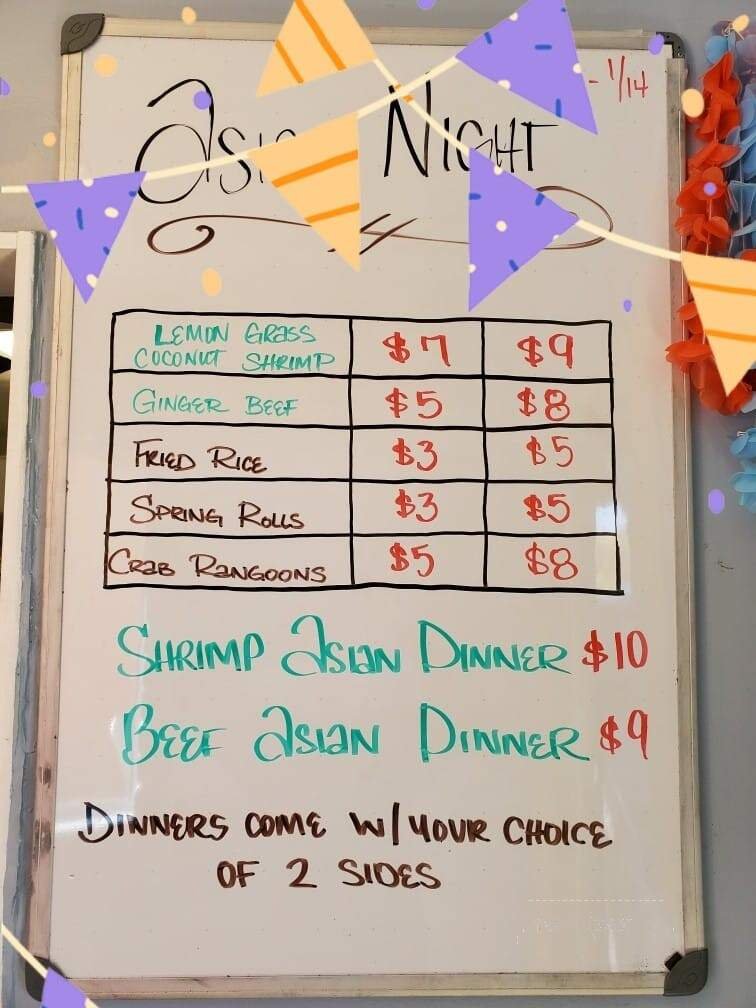 - 1/14
Asian Night
Lemon Grass
Coconut Shrimp $7 $9
Ginger Beef $5 $8
Fried Rice $3 $5
Spring Rolls $3 $5
Crab Rangoons $5 $8
Shrimp Asian Dinner $10
Beef Asian Dinner $9
Dinners come w/ your choice
of 2 sides